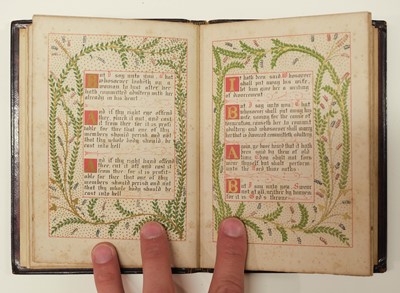 But I say unto you That
whosoever looketh on a
woman to lust after her
hath committed adultery with her
already in his heart
And if thy right eye offend
thee, pluck it out and cast
it from thee for it is profit
able for thee that one of thy
members should perish and not
that thy whole body should be
cast into hell
And if thy right hand offend
thee, cut it off and cast it
from thee for it is profit
able for thee that one of thy
members should perish and not
that thy whole body should be
cast into hell
It hath been said Whosoever
shall put away his wife,
let him give her a writing
of divorcement
But I say unto you That
whosoever shall put away his
wife saving for the cause of
fornication causeth her to commit
adultery and whosoever shall marry
her that is divorced committeth adultery
Again, ye have heard that it hath
been said by them of old
time Thou shalt not for
swear thyself but shalt perform
unto the Lord thine oaths
But I say unto you Swear
not at all neither by heaven
for it is God's throne